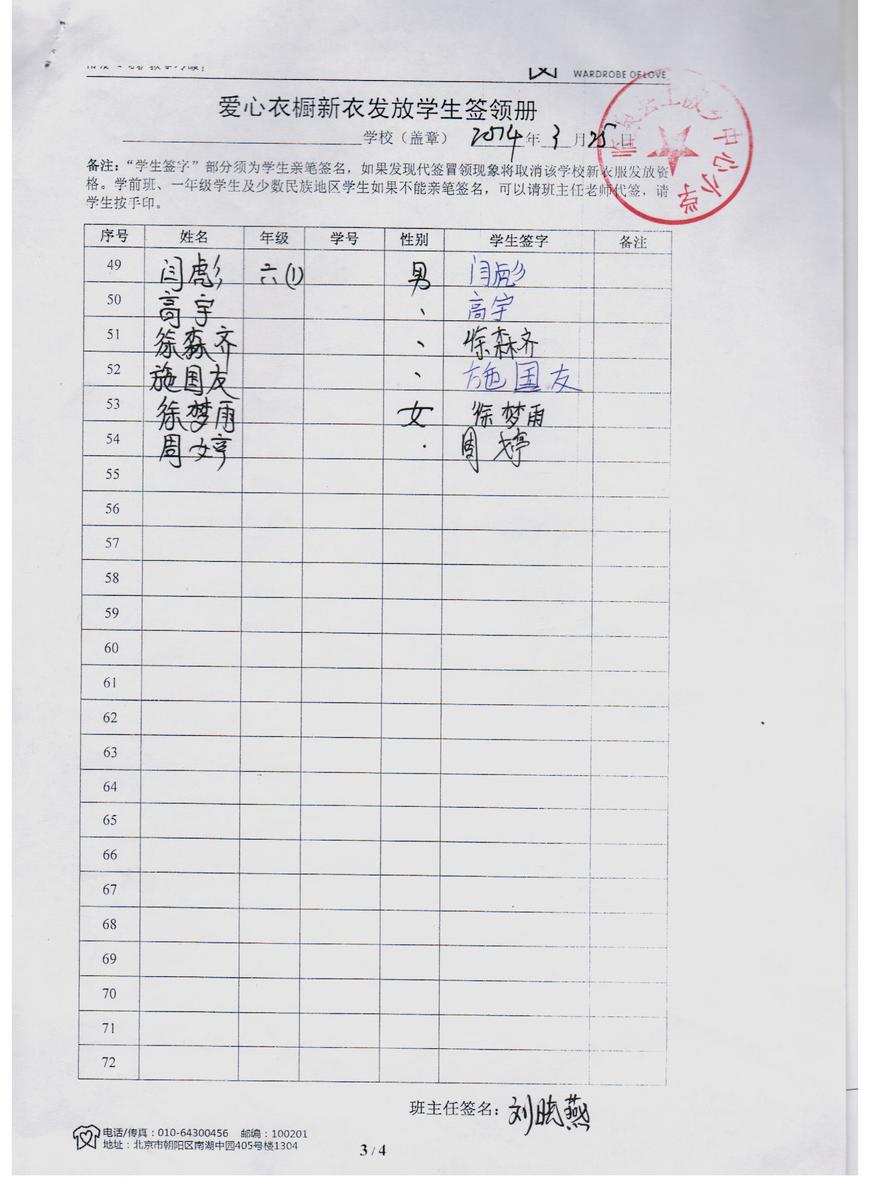 WARDROBE OF LOVE
爱心衣橱新衣发放学生签领册
学校（盖章） 2014年 3 月25日
中心小学
备注：“学生签字”部分须为学生亲笔签名，如果发现代签冒领现象将取消该学校新衣服发放资
格。学前班、一年级学生及少数民族地区学生如果不能亲笔签名，可以请班主任老师代签，请
学生按手印。
序号 姓名 年级 学号 性别 学生签字 备注
49 闫彪 六(1) 男 闫彪
50 高宇 、 高宇
51 徐森齐 、 徐森齐
52 施国友 、 施国友
53 徐梦雨 女 徐梦雨
54 周婷 . 周婷
55
56
57
58
59
60
61
62
63
64
65
66
67
68
69
70
71
72
班主任签名：刘晓燕
电话/传真：010-64300456 邮编：100201
地址：北京市朝阳区南湖中园405号楼1304
3 / 4